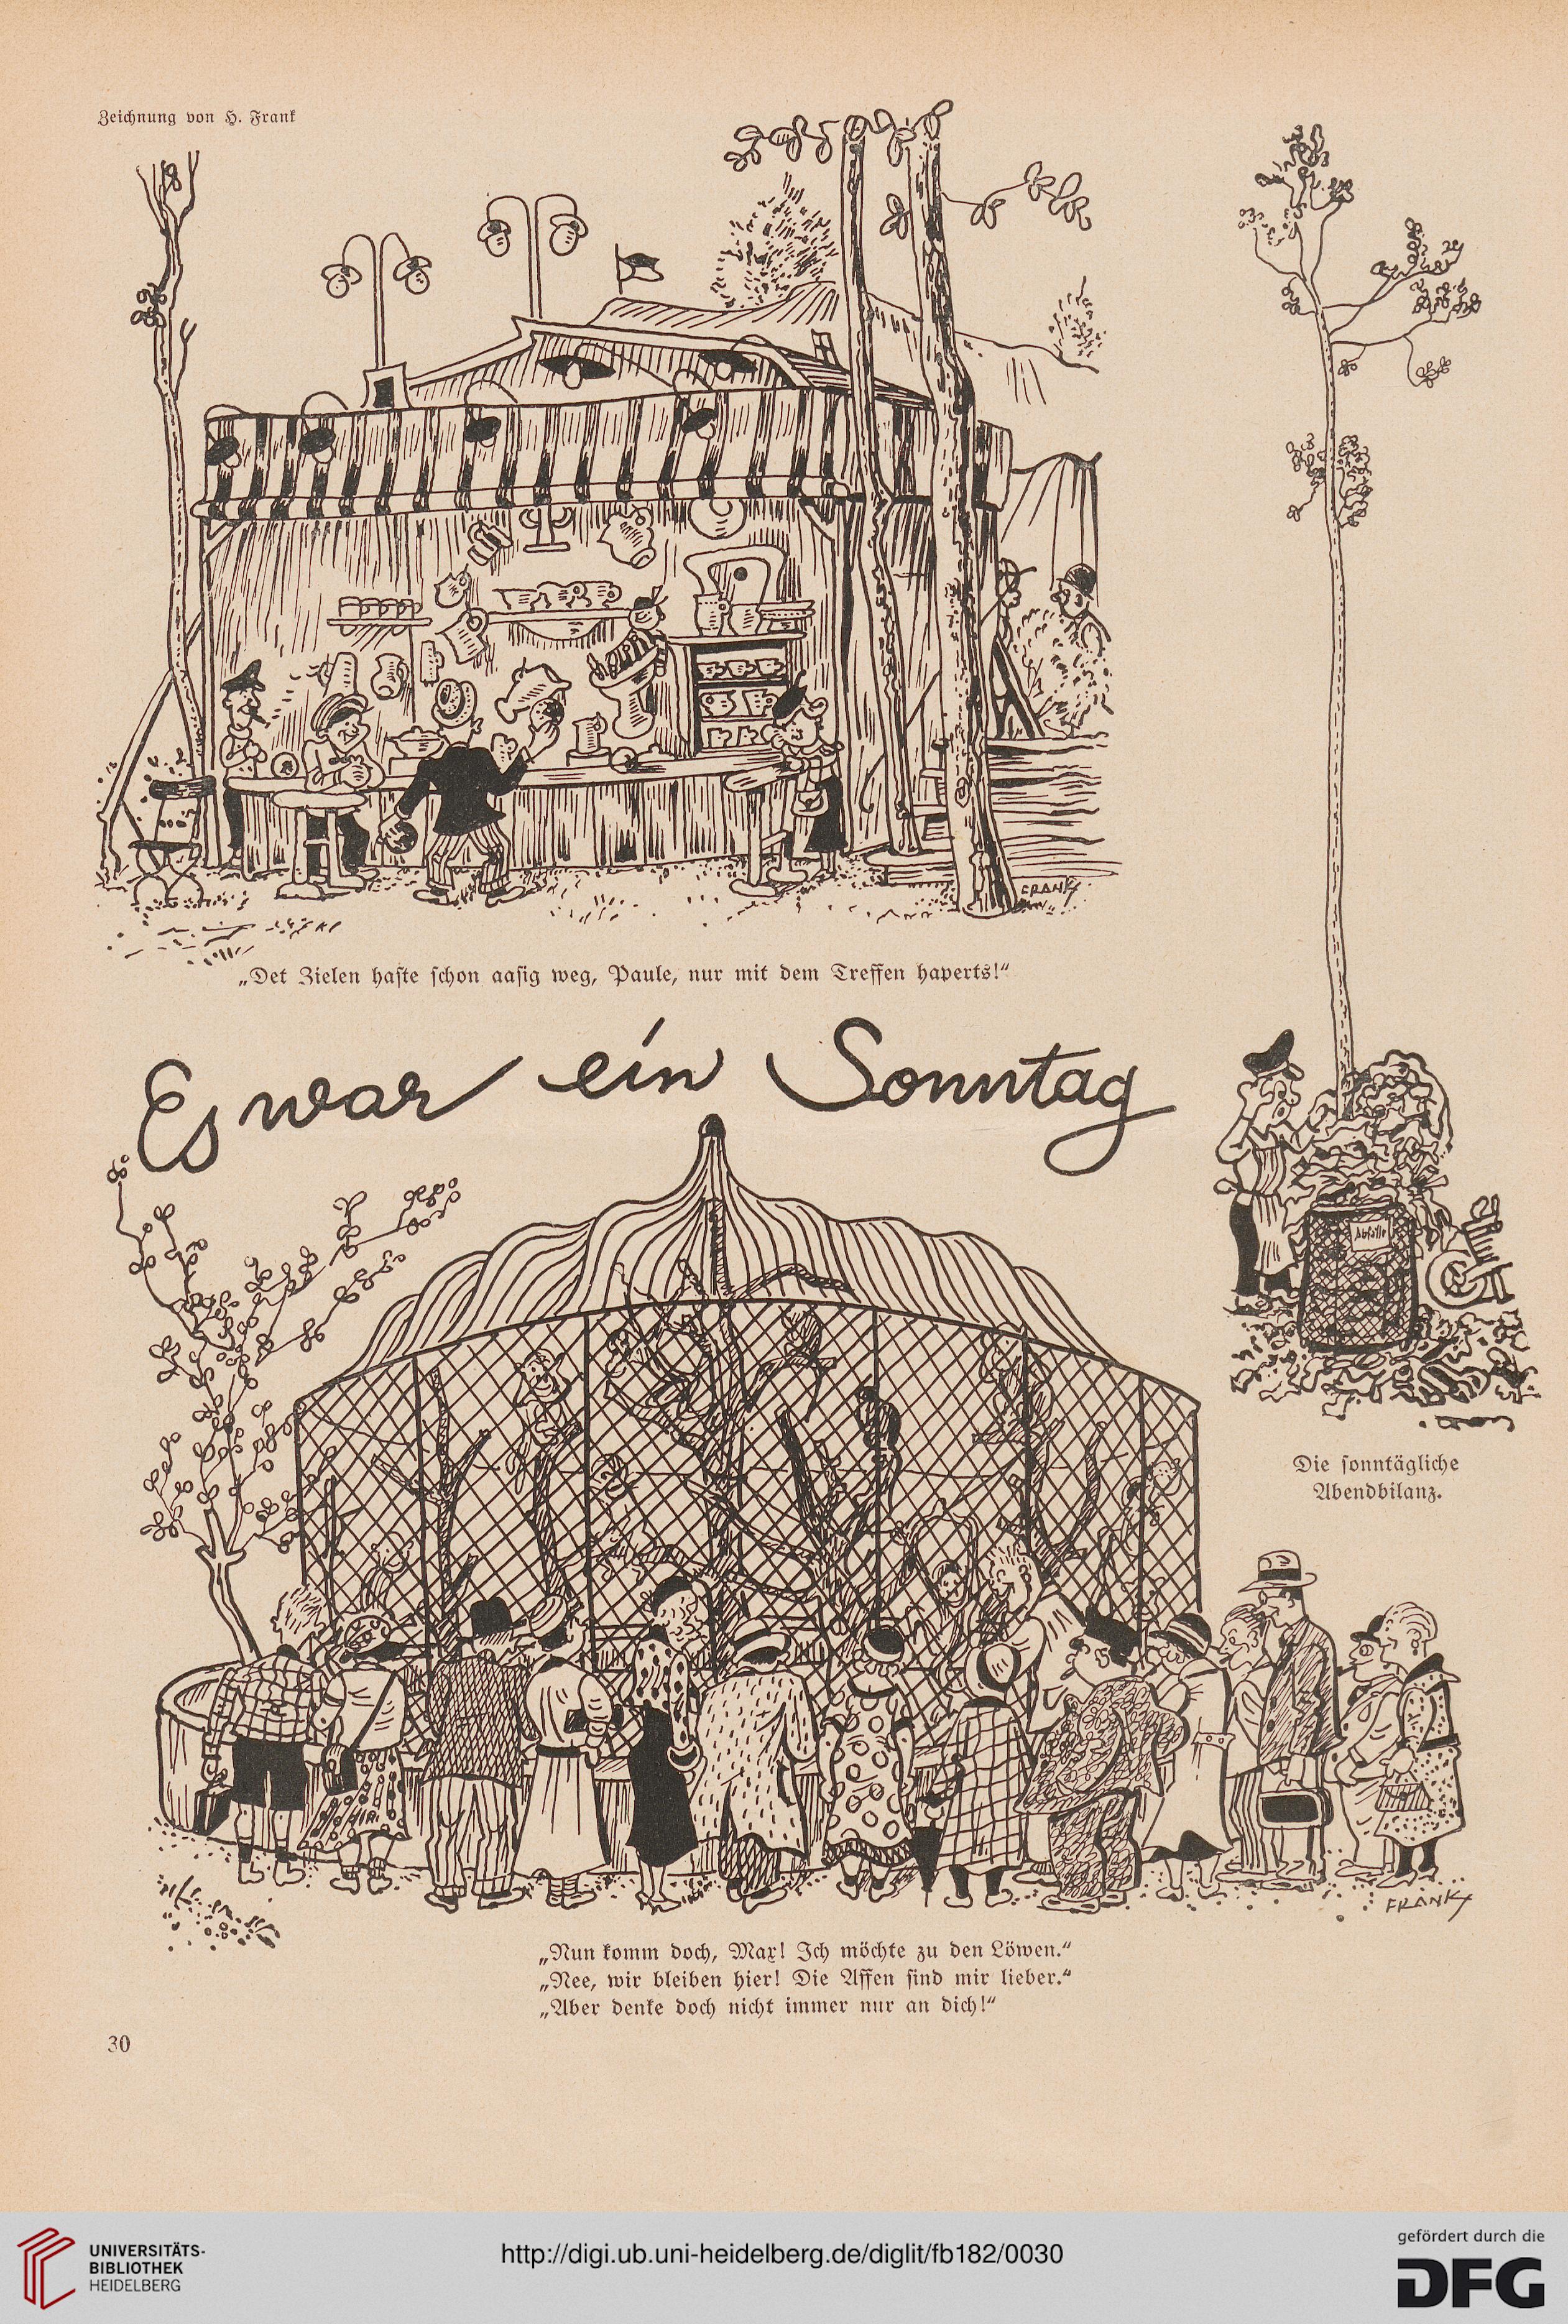 Zeichnung von H. Frank
FRANK
„Det Zielen haste schon aasig weg, Paule, nur mit dem Treffen haperts!“
Es war ein Sonntag
Abfälle
Die sonntägliche
Abendbilanz.
FRANK
„Nun komm doch, Max! Ich möchte zu den Löwen.“
„Nee, wir bleiben hier! Die Affen sind mir lieber.“
„Aber denke doch nicht immer nur an dich!“
30
UNIVERSITÄTS-
BIBLIOTHEK
HEIDELBERG
http://digi.ub.uni-heidelberg.de/diglit/fb182/0030
gefördert durch die
DFG